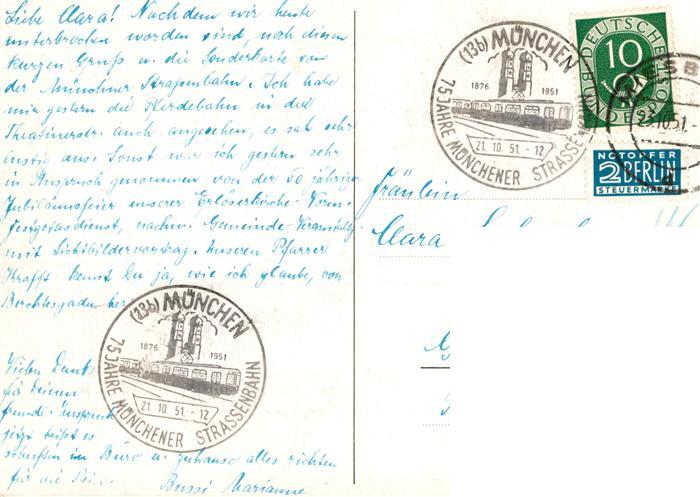 Liebe Clara! Nachdem wir heute
unterbrochen worden sind, noch diesen
kurzen Gruß u. die Sonderkarte von
der Münchner Straßenbahn. Ich habe
mir gestern die Pferdebahn in der
Theatinerstr. auch angesehen, es sah sehr
lustig aus. Sonst war ich gestern sehr
in Anspruch genommen von der 50 jährigen
Jubiläumsfeier unserer Erlöserkirche - Vorm.
Festgottesdienst, nachm. Gemeinde-Veranstaltg.
mit Lichtbildervortrag. Unseren Pfarrer
Krafft kennst Du ja, wie ich glaube, von
Berchtesgaden her.
Vielen Dank
für Deinen
jetzt heißt es
schuften im Büro u. zuhause alles richten
für die
Bussi Marianne
(13b) MÜNCHEN
1876 1951
21.10.51.-12
75 JAHRE MÜNCHENER STRASSENBAHN
(13b) MÜNCHEN
1876 1951
21.10.51.-12
75 JAHRE MÜNCHENER STRASSENBAHN
DEUTSCHE BUNDESPOST
10
23.10.51.-
NOTOPFER
2 BERLIN
STEUERMARKE
Fräulein
Clara